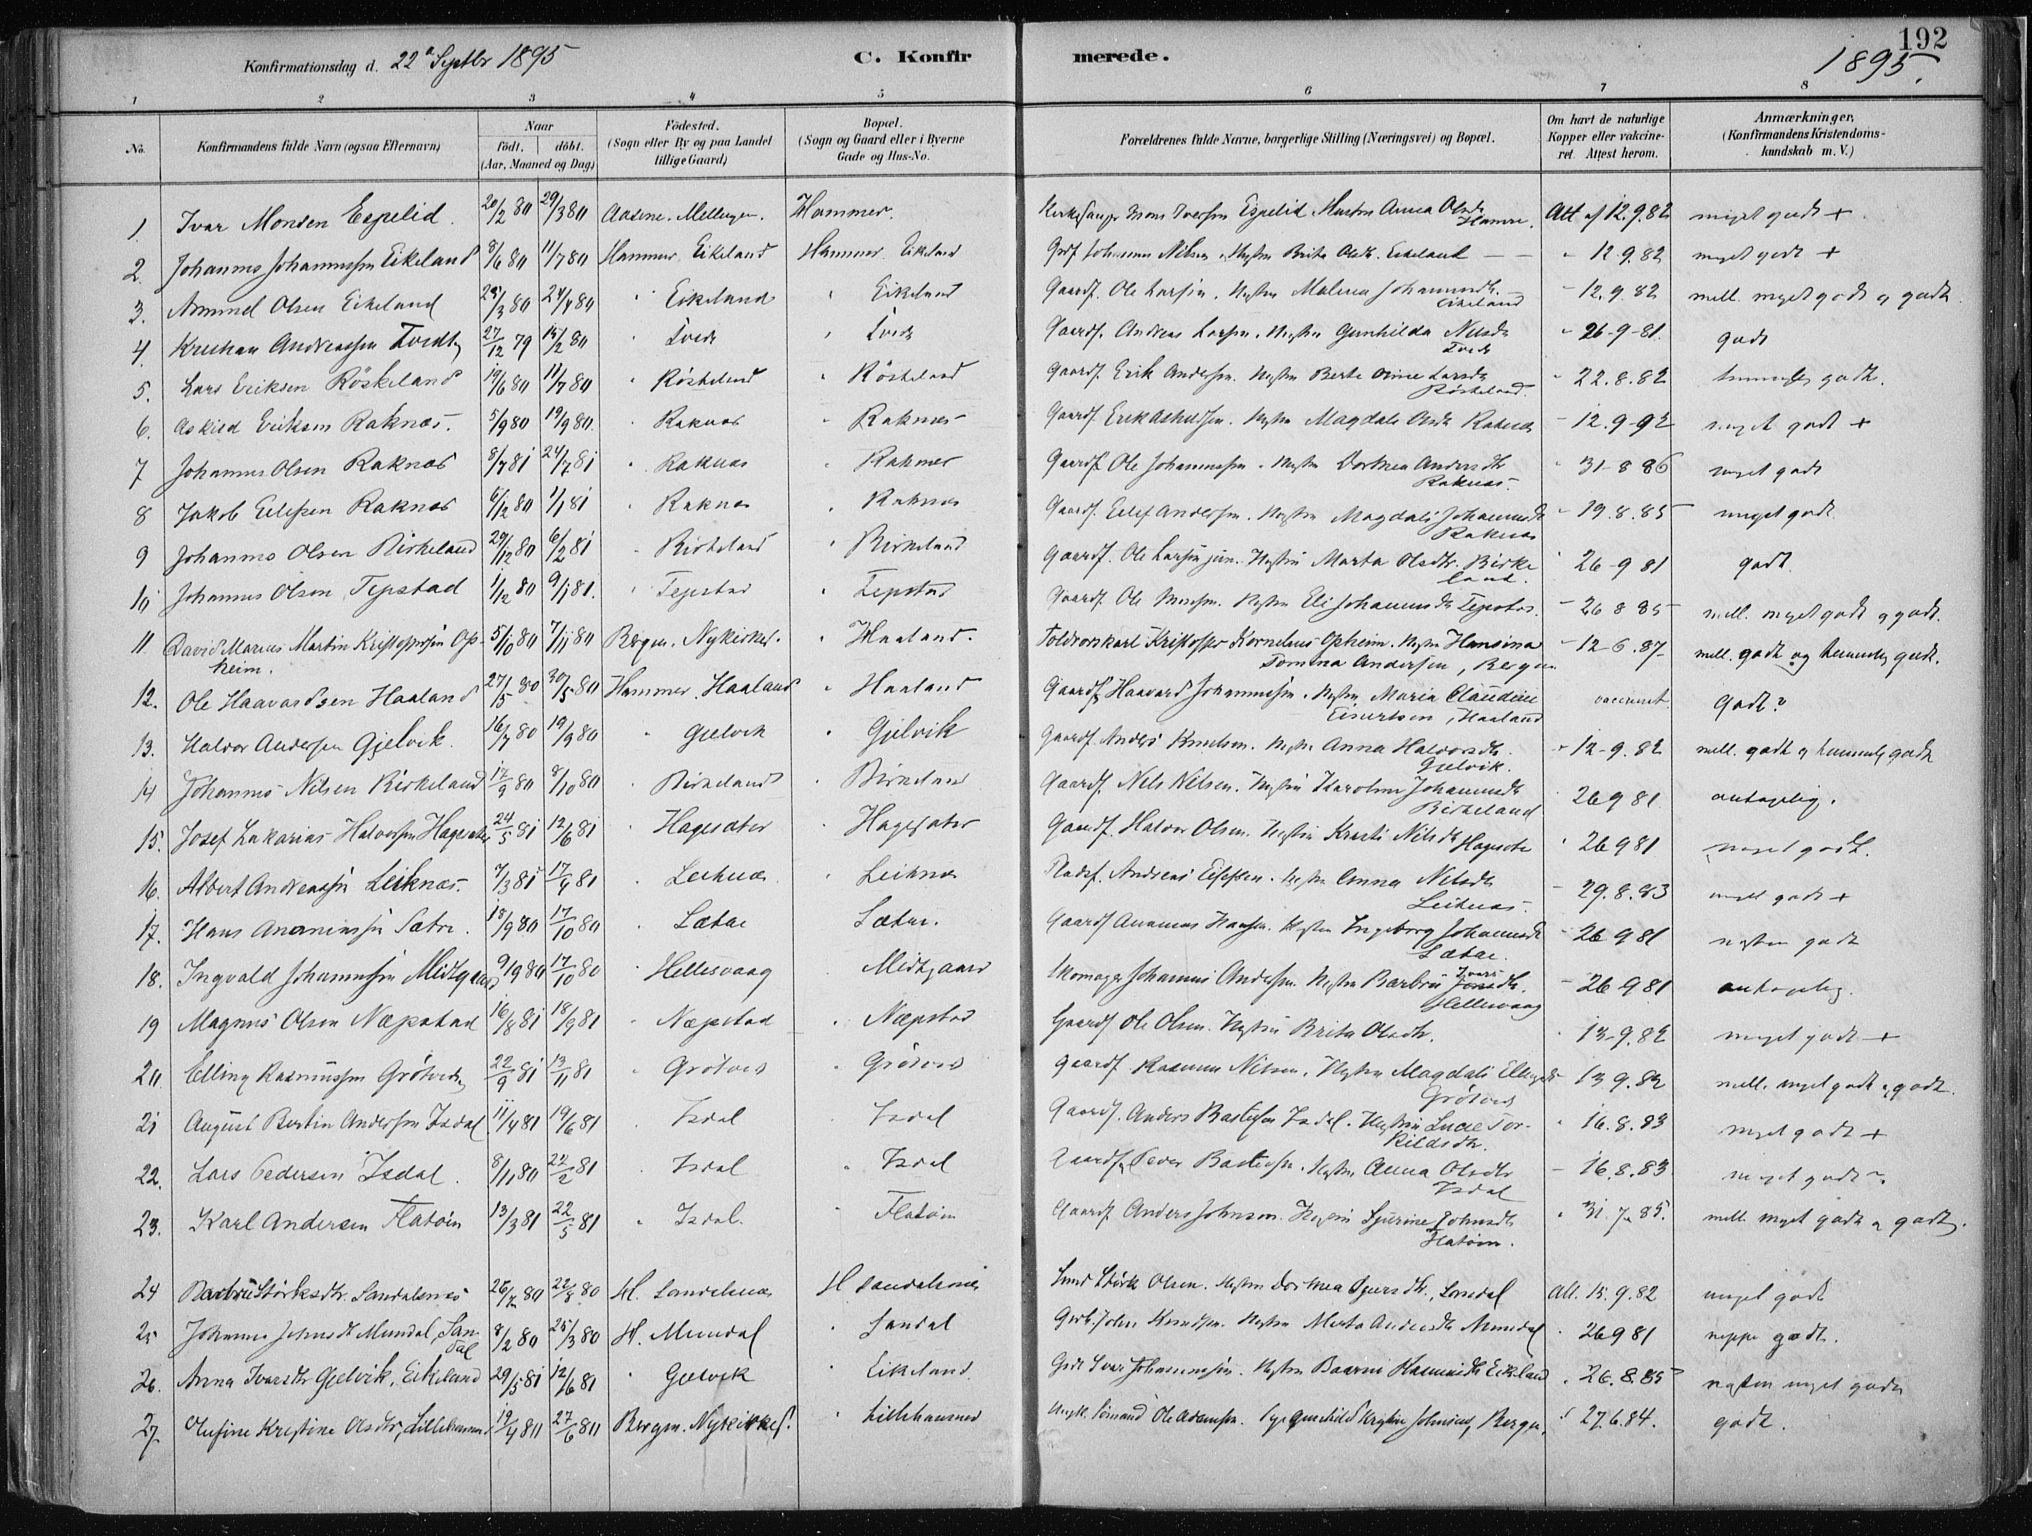 192
Konfirmationsdag d. 22de Septbr 1895 C. Konfirmerede. 1895.
1 2 3 4 5 6 7 8
No. Konfirmandens fulde Navn (ogsaa Efternavn) Naar födt. döbt. (Aar, Maaned og Dag) Födested. (Sogn eller By og paa Landet tillige Gaard) Bopæl. (Sogn og Gaard eller i Byerne Gade og Hus-No. Forældrenes fulde Navne, borgerlige Stilling (Næringsvei) og Bopæl. Om havt de naturlige Kopper eller vakcineret. Attest herom. Anmærkninger, (Konfirmandens Kristendomskundskab m. V.)
1. Ivar Monsen Espelid. 20/2 80 29/3 80 Aasene. Mellingen. Hammer. Kirkesanger Mons Iversen Espelid Anna Olsdr Hamre. Att af 12.9.82 meget godt +
2. Johannes Johannessen Eikeland 8/6 80 11/7 80 Hammer Eikeland Hammer Eikeland Grdf Johannes Nilsen. Hustru Brita Olsdr. Eikeland " 12.9.82 meget godt +
3. Ammel Olsen Eikeland 28/3 80 24/4 80 " Eikeland " Eikeland Gaardf. Ole Larsen. Hustru Malena Johannesdr. Eikeland - 12.9.82 mell. meget godt og godt.
4. Kristian Andreassen Tvedt 27/12 79 15/2 80 " Tvedt " Tvedt Gaardf. Andreas Larsen. Hustru Gunhilda Nelsdr Tvedt - 26-9-81. godt
5. Lars Eriksen Röskeland 19/6 80 11/7 80 " Röskeland " Röskeland Gaardf. Erik Andersen. Hustru Berte Larsdr Röskeland. " 22.8.82 temmelig godt.
6. Askild Eriksen Raknæs. 5/9 80 19/9 80. " Raknæs " Raknæs Gaardf. Erik Askildsen. Hustru Magdali Olsdr Raknæs - 12.9-92 meget godt +
7 Johannes Olsen Raknæs 8/7 81 24/7 81 " Raknæs " Raknæs Gaardf. Ole Johannessen. Hustru Dorthea Andersdr Raknæs. " 31-8 86 meget godt
8 Jakob Eilefsen Raknæs 6/12 80 1/1 81 " Raknæs " Raknæs Gaardf. Eilef Andersen. Hustru Magdali Johannesdr Raknæs - 19.8.85 meget godt
9 Johannes Olsen Birkeland 29/12 80 6/2 81 " Birkeland " Birkeland Gaardf. Ole Larsen jun. Hustru Marta Olsdr. Birkeland. " 26-9 81 godt
10 Johannes Olsen Tepstad 1/12 80 9/1 81. " Tepstad " Tepstad Gaardf. Ole Monsen. Hustru Eli Johannesdr Tepstad. - 26 8 85 mell. meget godt og godt.
11. David Marius Martin Kristoffersen Opheim. 5/10 80 7/11 80 Bergen. Nykirkes. " Haaland. Toldvorskarl Kristoffer Kornelius Opheim. Hustru Hansina Tomina Andersen, Bergen - 12-6.87 mell. godt og temmelig godt.
12. Ole Haavardsen Haaland 27/5 80 30/5 80 Hammer. Haaland " Haaland Gaardf. Haavard Johannessen. Hustru Maria Claudine Einertsen, Haaland vaccineret. Godt?
13. Halvor Andersen Gjelvik. 16/7 80 19/9 80 " Gjelvik " Gjelvik Gaardf. Anders Knudsen. Hustru Anna Halvorsdr. Gjelvik. " 12-9.82 mell. godt og temmelig godt
14 Johannes Nilsen Birkeland 17/9 80 8/10 80 " Birkeland " Birkeland Gaardf. Nels Nilsen. Hustru Karoline Johannesdr Birkeland 26 9 81 antagelig.
15. Josef Zakarias Halvorsen Hagesæter 24/5 81 12/6 81 " Hagesæter " Hagesæter Gaardf. Halvor Olsen. Hustru Kristi Nilsdr Hagesæter " 26 9 81 meget godt.
16. Albert Andreassen Leiknæs. 7/3 81 17/4 81 " Leiknæs " Leiknæs Pladsf. Andreas Hustru Anna Nilsdr Leiknæs. - 29.8.83 meget godt +
17. Hans Ananiassen Sætre. 18/9 80 17/10 80 " Sætre " Sætre. Gaardf Ananias Hansen. Hustru Ingeborg Johannesdr Sætre. - 26 9 81 næsten godt
18. Ingvald Johannessen Midtgaard 9/9 80 17/10 80 " Hellesvaag " Midtgaard Skomager Johannes Andersen Hustru Barbru Ivarsdr. Hellesvaag - 26 9 81 antagelig.
19 Magnus Olsen Næpstad 16/8 81 18/9 81 " Næpstad " Næpstad Gaardf Ole Olsen. Hustru Brita Olsdr. " 13-9.82 meget godt +
20. Elling Rasmussen Grötveds 22/9 81 13/11 81 " Grötveds " Grötveds Gaardf Rasmus Nilsen. Hustru Magdali Ellingsdr Grötveds - 13.9.82 mell. meget godt og godt.
21 August Bertin Andersen Isdal 11/4 81 19/6 81 " Isdal " Isdal Gaardf. Anders Bastesen Isdal. Hustru Lucie Torkildsdr. " 16.8.83 meget godt +
22. Lars Pedersen Isdal. 8/11 80 22/2 81 " Isdal " Isdal Gaardf Peder Bastesen. Hustru Anna Olsdr Isdal - 16.8.83 meget godt
23. Karl Andersen Flatöen 13/3 81 22/5 81 " Isdal. " Flatöen Gaardf Anders Johnsen. Hustru Sjurine Johnsdr Flatöen. " 31.7.85. mell. meget godt og godt.
24 Barbru Störksdr. Sandalsnæs 25/7 80 22/8 80 H. Sandalsnæs H Sandalsnæs Smed Störk Olsen. Hustru Dorthea Sjursdr., Sandal Att. 15.9.82 meget godt
25 Johanna Johnsdr Mundal, Sandal 8/2 80 25/3 80 H. Mundal " Sandal Grdb. John Knudsen. Hustru Marta Andersdr Mundal " 26 9 81 neppe godt.
26. Anna Ivarsdr Gjelvik, Eikeland 29/5 81 12/6 81 " Gjelvik " Eikeland. Grdf Ivar Johannessen. Hustru Rasmusdr Eikeland . 26.8.85 næsten meget godt
27. Olufine Kristine Olsdr, Lillehammer 19/4 80 27/6 80 Bergen. Nykirkes. " Lillehammer Ungk. Sömand Ole Adamsen. Pige Gunhild Kristine Johnsens, Bergen. " 27.6.84. godt.